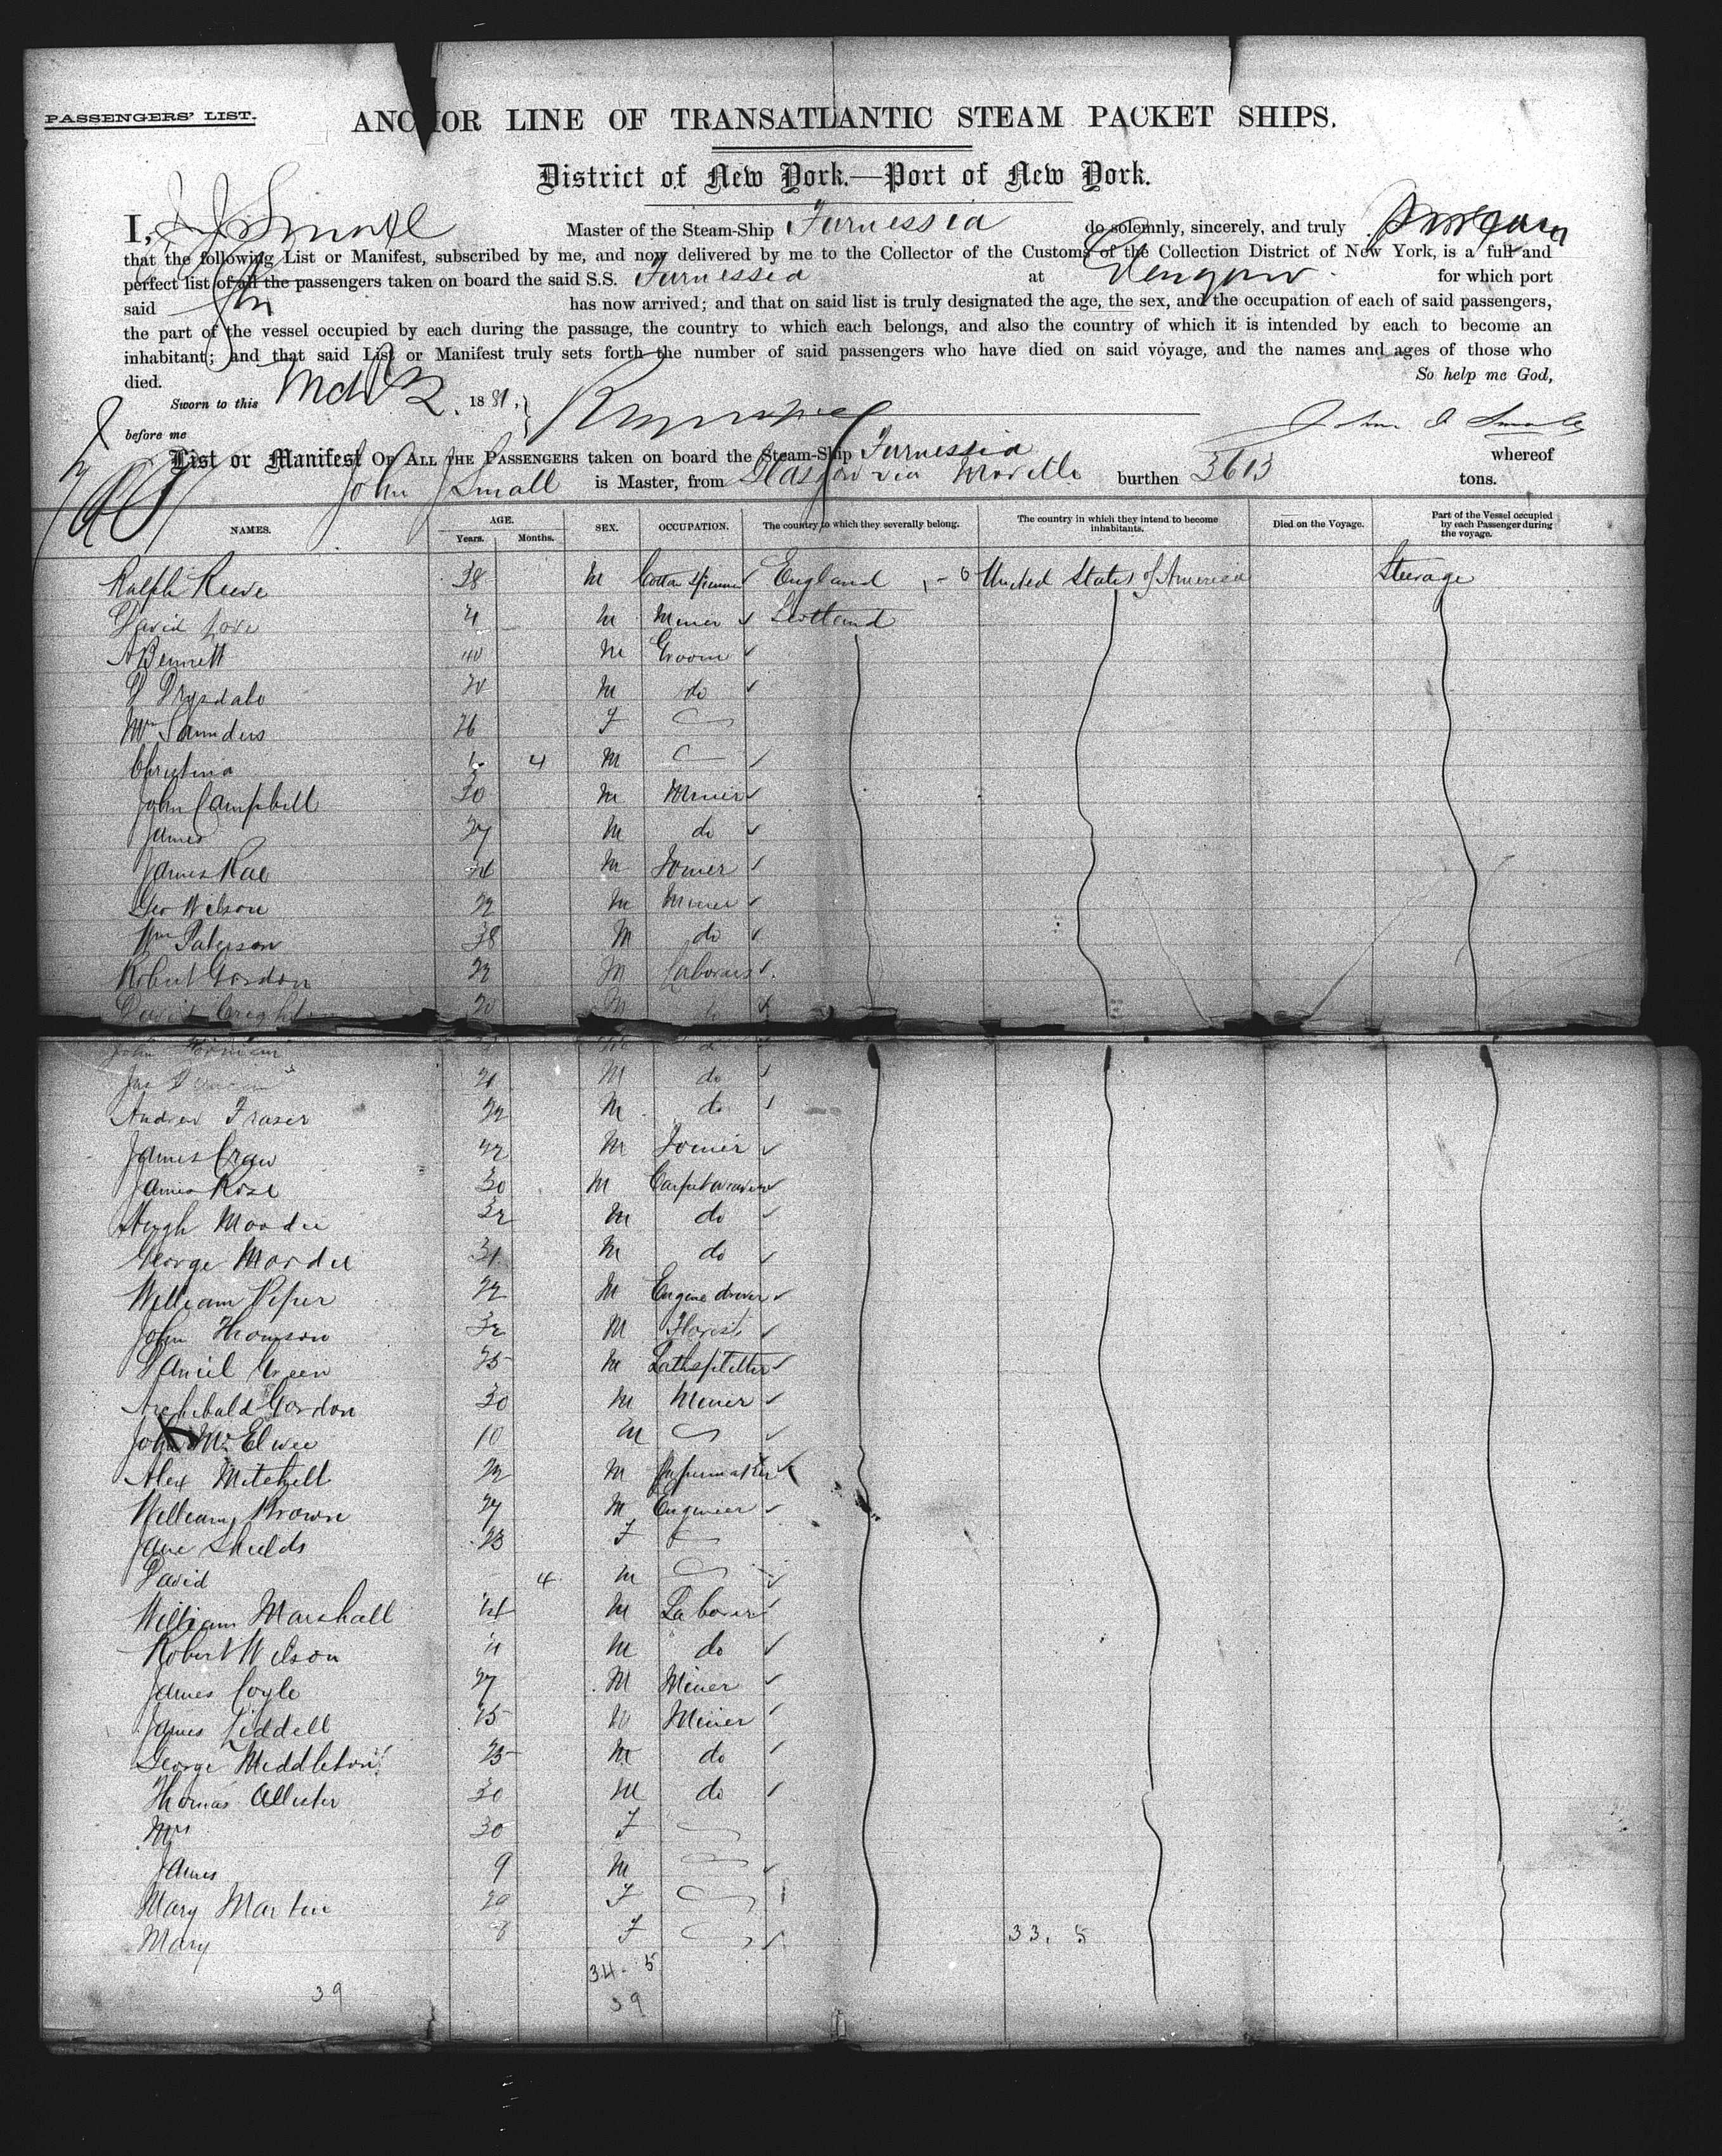 PASSENGERS' LIST.
ANCHOR LINE OF TRANSATLANTIC STEAM PACKET SHIPS.
District of New York.—Port of New York.
I, J J Small Master of the Steam-Ship Furnessia do solemnly, sincerely, and truly Swear
that the following List or Manifest, subscribed by me, and now delivered by me to the Collector of the Customs of the Collection District of New York, is a full and
perfect list of all the passengers taken on board the said S.S. Furnessia at Glasgow for which port
said has now arrived; and that on said list is truly designated the age, the sex, and the occupation of each of said passengers,
the part of the vessel occupied by each during the passage, the country to which each belongs, and also the country of which it is intended by each to become an
inhabitant; and that said List or Manifest truly sets forth the number of said passengers who have died on said voyage, and the names and ages of those who
died. So help me God,
Sworn to this Mch 1881,
before me John J Small
List or Manifest OF ALL THE PASSENGERS taken on board the Steam-Ship Furnessia whereof
John J Small is Master, from Glasgow via Moville burthen 3613 tons.
NAMES. AGE. Years. Months. SEX. OCCUPATION. The country to which they severally belong. The country in which they intend to become inhabitants. Died on the Voyage. Part of the Vessel occupied by each Passenger during the voyage.
Ralph Reeve 38 M Cotton Spinner England United States of America Steerage
David Love M Miner Scotland
A Bennett 40 M Groom
Drysdale M do
Saunders 26 F
Christina 4 M
John Campbell 30 M Miner
James 27 M do
James Rae M Joiner
Geo Wilson 22 M Miner
Wm Paterson 38 M do
Robert Gordon 22 M Laborer
David Creighton 20 M do
John M do
Jas M do
Andrew Fraser 22 M do
James Craw M Joiner
James Rose 30 M Carpet weaver
Hugh Moodie 32 M do
George Moodie 31 M do
William Piper 22 M Engine driver
John Thomson 32 M Florist
Daniel Green 25 M Lathsplitter
Archibald Gordon 30 M Miner
John McElwee 10 M
Alex Mitchell 22 M Papermaker
William Brown 27 M Engineer
Jane Shields 23 F
David 4 M
William Marshall M Laborer
Robert Wilson M do
James Coyle 27 M Miner
James Liddell 25 M Miner
George Middleton 25 M do
Thomas Allister 30 M do
Mrs 30 F
James 9 M
Mary Martin F
Mary 8 F 33. 5
34 - 5
39 39